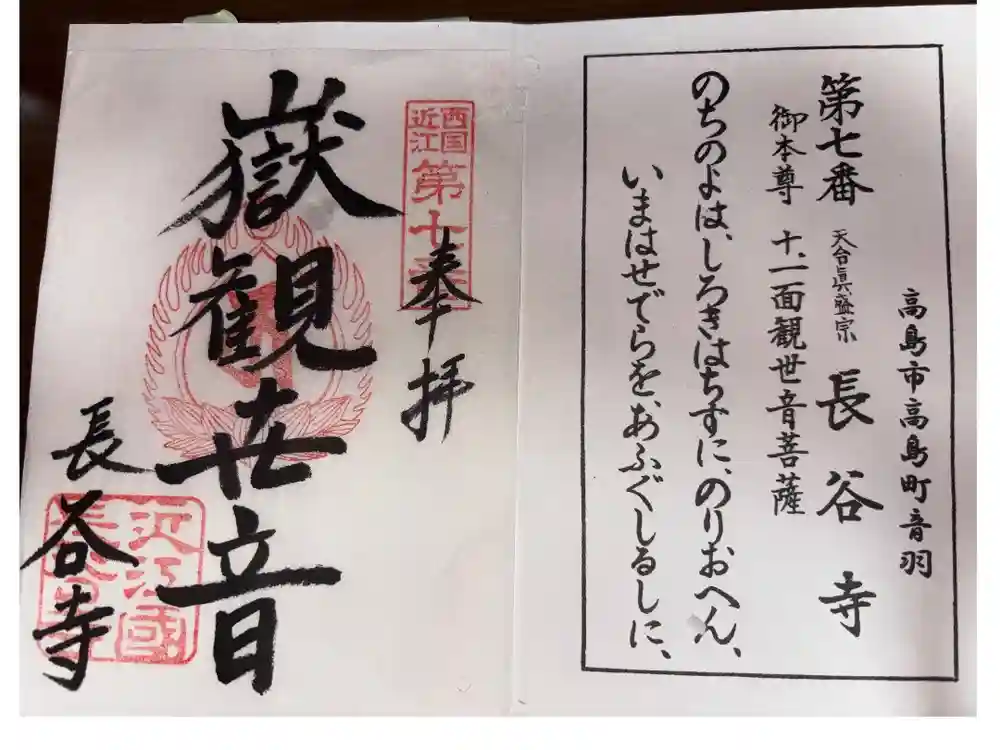 高島市高島町音羽
第七番 天台眞盛宗 長谷寺
御本尊 十一面観世音菩薩
のちのよは、しろきはちすに、のりおへん、
いまはせでらを、あふぐしるしに、
西国
近江
第七番
奉拝
嶽観世音
長谷寺
近江國
長谷寺